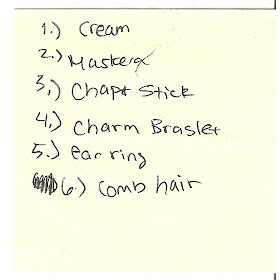 1.) Cream
2.) Maskerx
3.) Chapt Stick
4.) Charm Braslet
5.) ear ring
6.) Comb hair